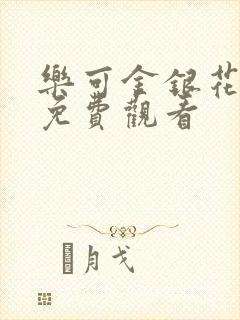 樂可金銀花
免費觀看
月戈